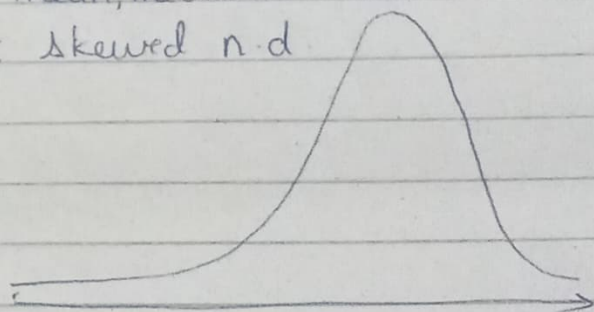 : skewed n.d